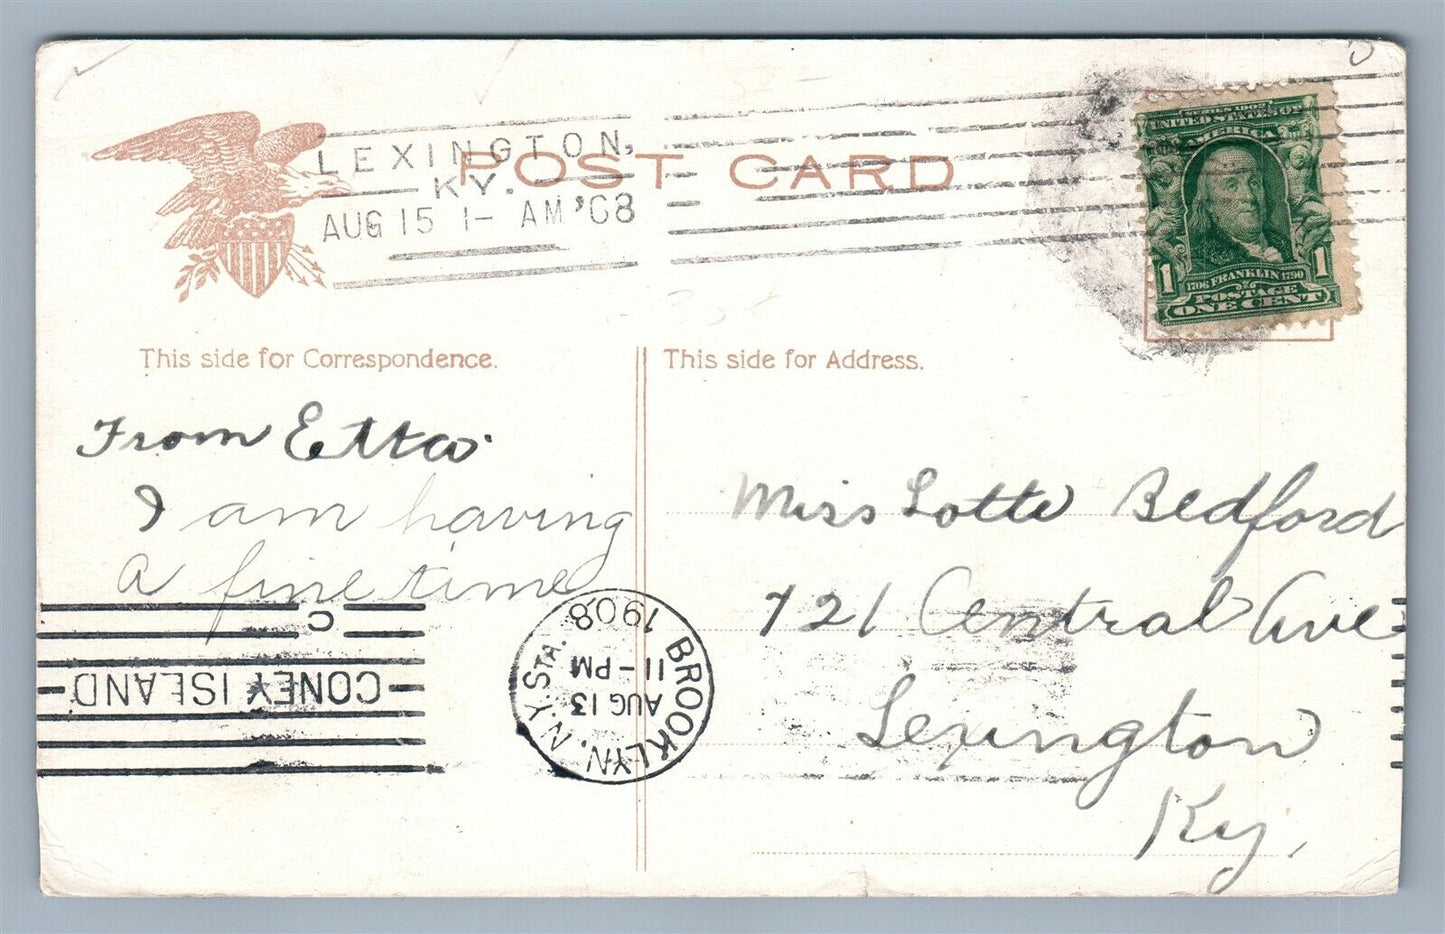 LEXINGTON,
KY.
AUG 15 1- AM '08
POST CARD
SERIES 1902
UNITED STATES OF
AMERICA
1706 FRANKLIN 1790
1 1
POSTAGE
ONE CENT
This side for Correspondence.
This side for Address.
From Etta
I am having
a fine time
Miss Lotte Bedford
721 Central Ave
Lexington
Ky.
C
CONEY ISLAND
BROOKLYN, N.Y. STA.
AUG 13
11-PM
1908